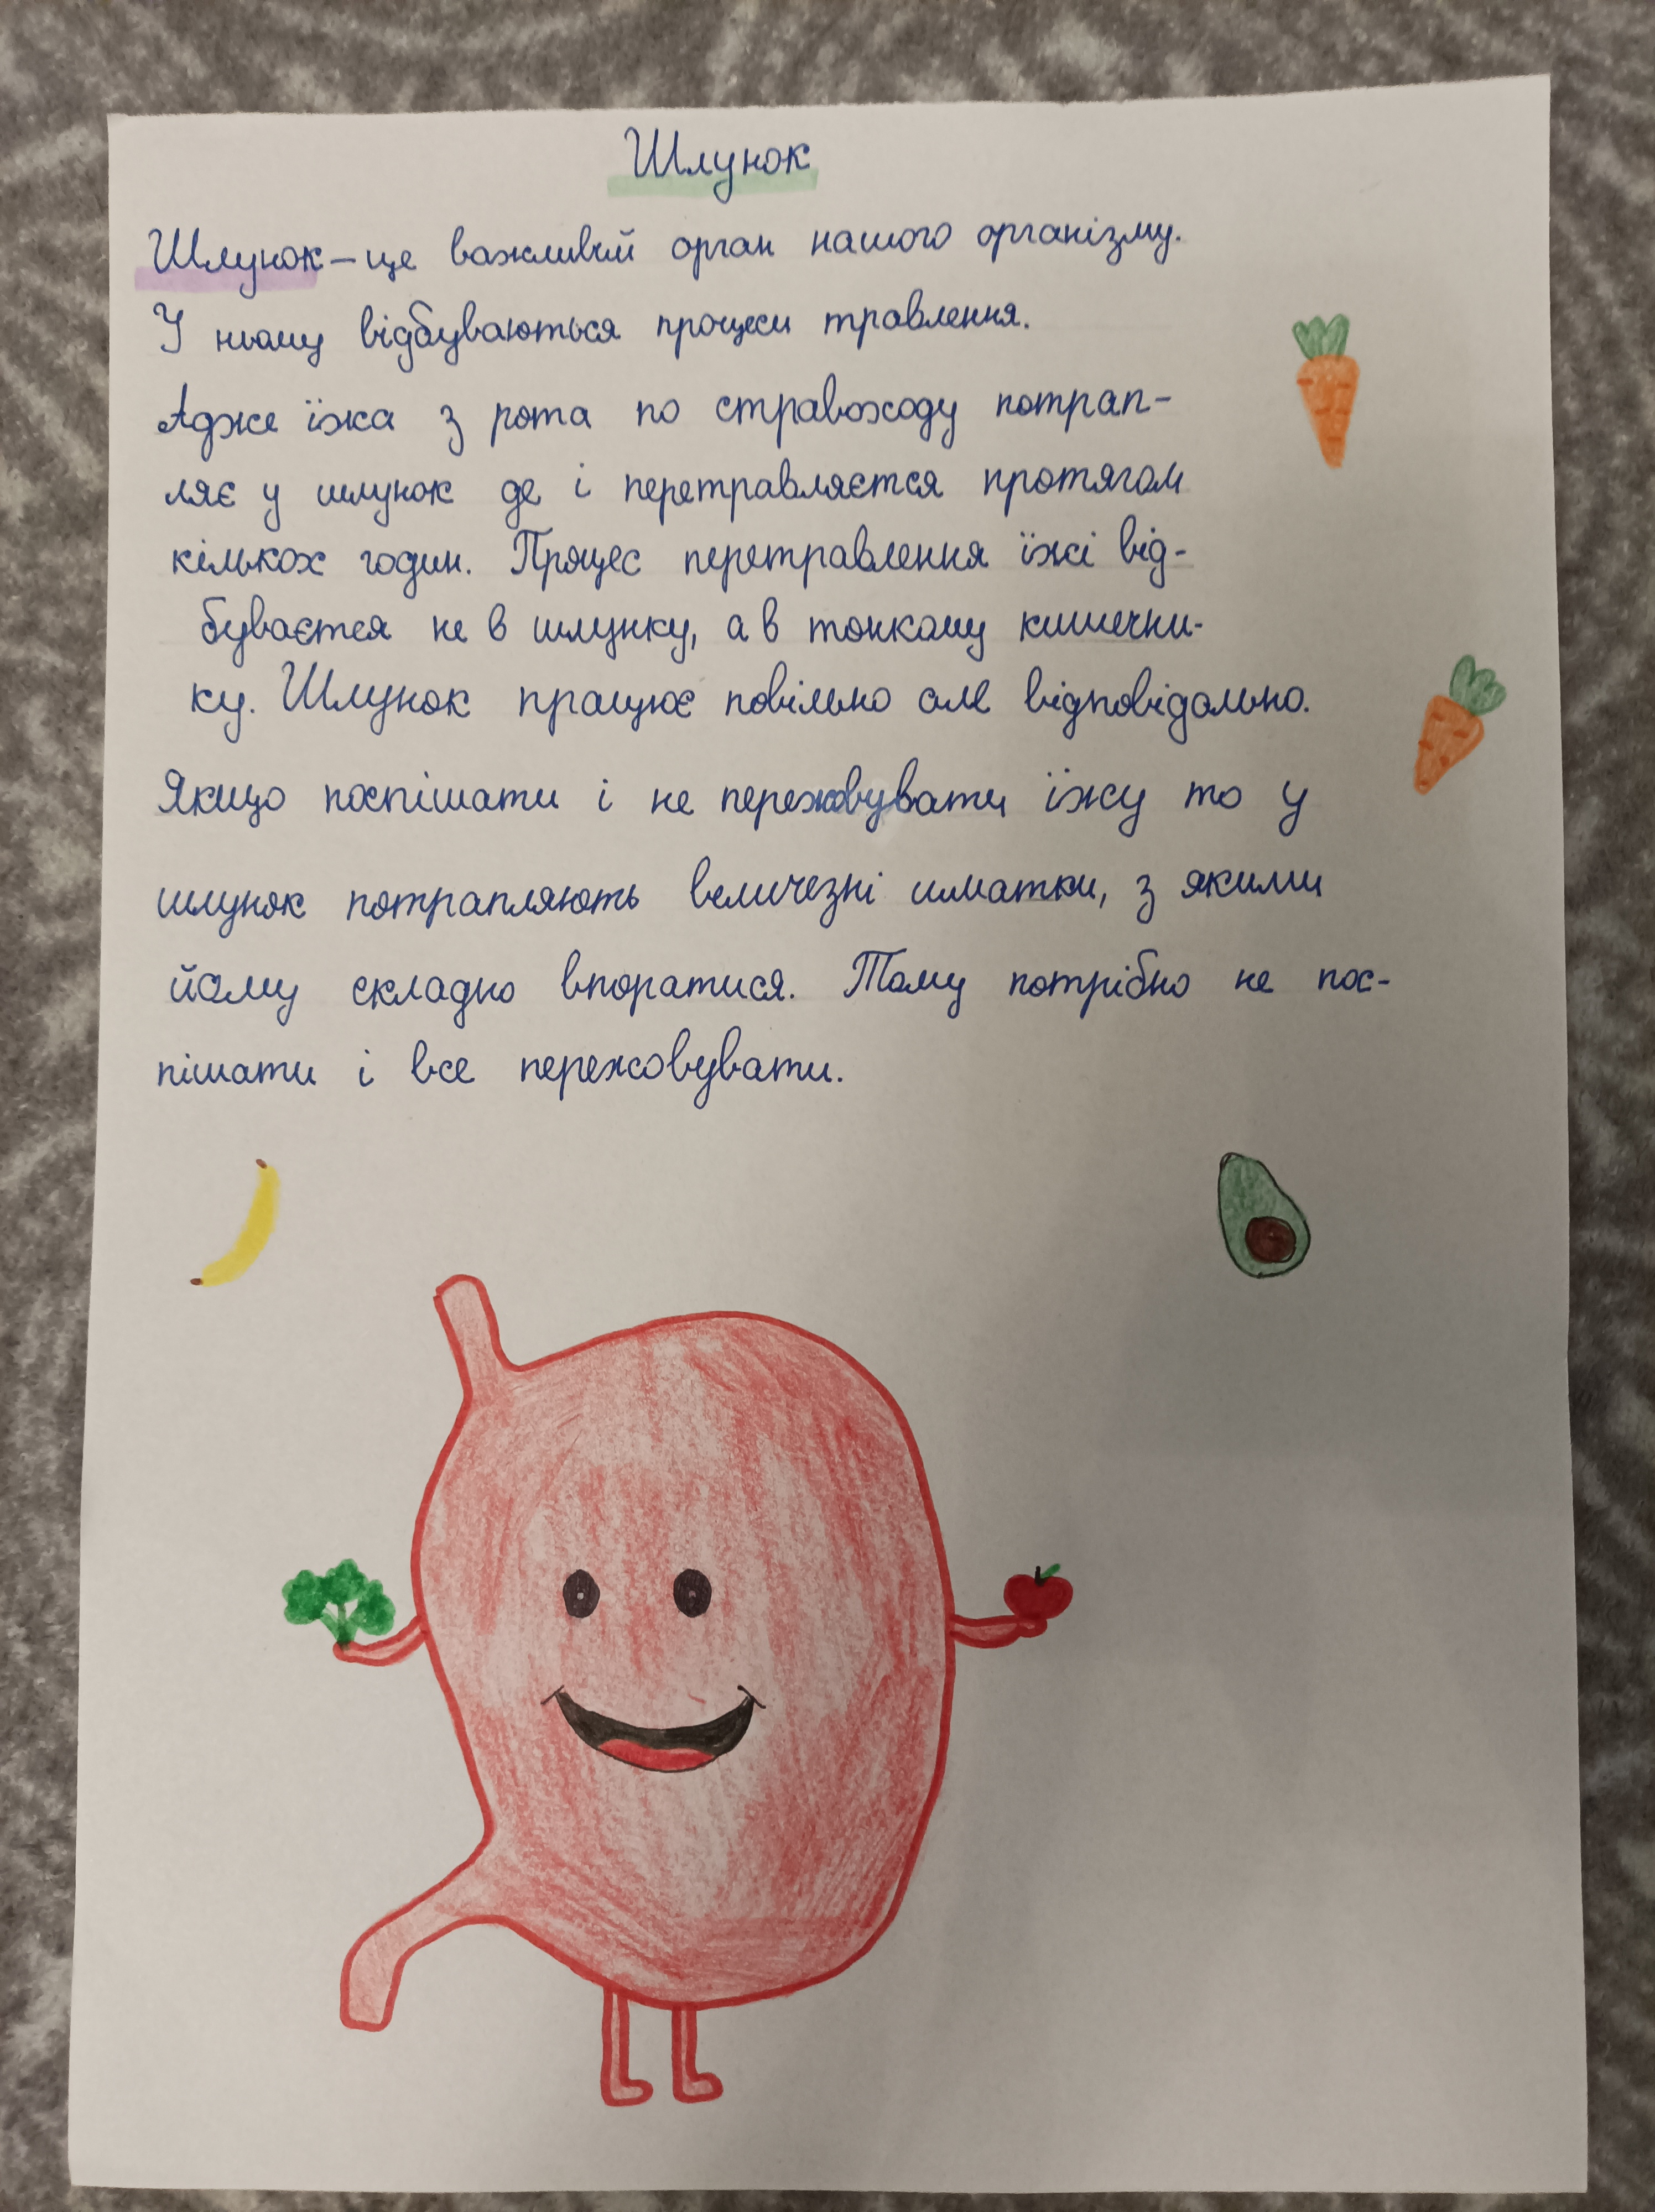 Шлунок
Шлунок – це важливий орган нашого організму.
У ньому відбуваються процеси травлення.
Адже їжа з рота по стравоходу потрап-
ляє у шлунок де і перетравляєтся протягом
кількох годин. Процес перетравлення їжі від-
буваєтся не в шлунку, а в тонкому кишечни-
ку. Шлунок працює повільно але відповідально.
Якщо поспішати і не пережовувати їжу то у
шлунок потрапляють величезні шматки, з якими
йому складно впоратися. Тому потрібно не пос-
пішати і все пережовувати.